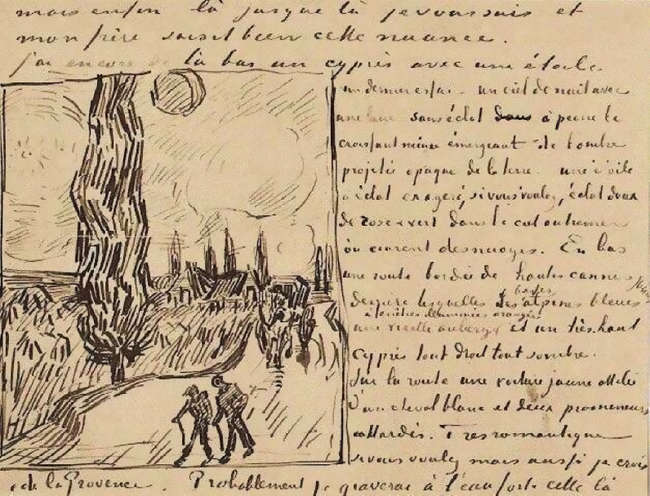 mais enfin là jusque là je vous suis et
mon frère saisit bien cette nuance.
j'ai encore de là bas un cyprès avec une étoile
un dernier essai – un ciel de nuit avec
une lune sans éclat à peine le
croissant mince émergeant de l'ombre
projetée opaque de la terre. une étoile
à éclat exageré, si vous voulez, éclat doux
de rose & vert dans le ciel outremer
où courent des nuages. En bas
une route bordée de hautes cannes jaunes
derrière lesquelles les basses alpines bleues
à fenêtres illuminées orangées
une vieille auberge et un très haut
cyprès tout droit tout sombre.
Sur la route une voiture jaune attelée
d'un cheval blanc et deux promeneurs
attardés. Très romantique
si vous voulez mais aussi je crois
de la Provence. Probablement je graverai à l'eau forte celle là